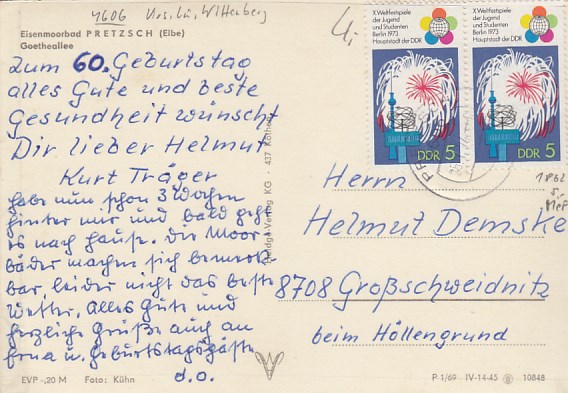 4606 Krs. Lu. Wittenberg
Eisenmoorbad PRETZSCH (Elbe)
Goetheallee
Zum 60. Geburtstag
alles Gute und beste
Gesundheit wünscht
Dir lieber Helmut
Kurt Träger
habe nun schon 3 Wochen
hinter mir und bald geht
es nach Hause. Die Moor-
bäder machen sich bemerk-
bar leider nicht das beste
Wetter. Alles Gute und
herzliche Grüße auch an
Frau u. Geburtstagsgäste
d.o.
EVP -,20 M Foto: Kühn
X. Weltfestspiele
der Jugend
und Studenten
Berlin 1973
Hauptstadt der DDR
DDR 5
X. Weltfestspiele
der Jugend
und Studenten
Berlin 1973
Hauptstadt der DDR
DDR 5
Herrn
Helmut Demske
8708 Großschweidnitz
beim Höllengrund
Verlag KG · 437 Köthen
P 1/69 IV-14-45 10848